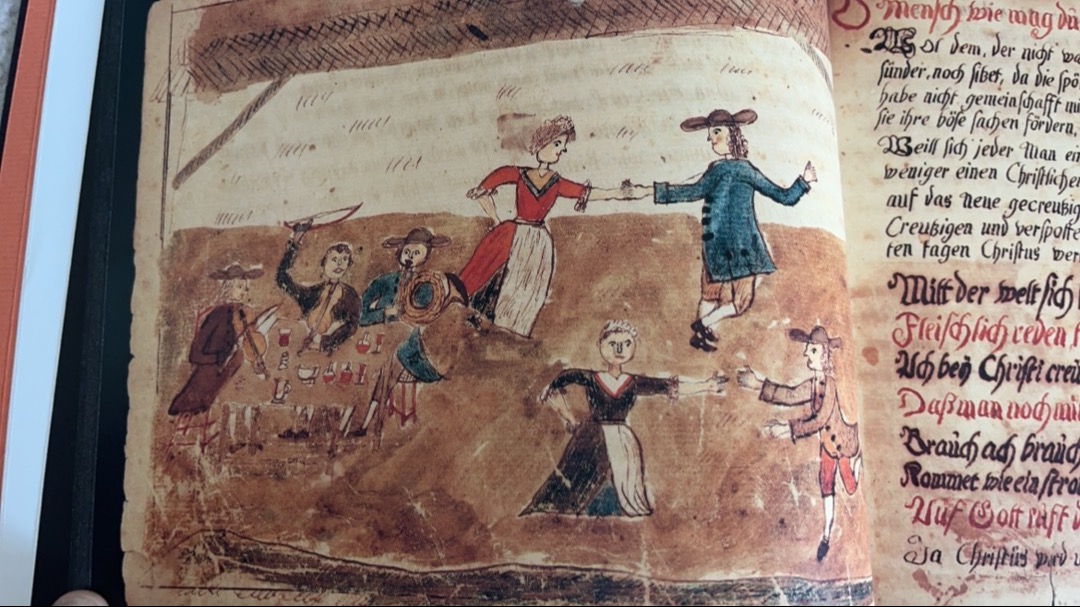 Mensch wie mag du
Wol dem, der nicht wa
sünder, noch sitzet, da die spö
habe nicht gemeinschafft mi
sie ihre böse sachen fördern,
Weill sich jeder Man ei
weniger einen Christlichen
auf das neue gecreutzig
Creutzigen und verspotte
ten tagen Christus wer
Mitt der welt sich
Fleischlich reden
Ach beÿ Christi creu
Daß man noch mi
Brauch ach brauch
Kommet wie ein stro
Auf Gott rufft
Ja Christus wird